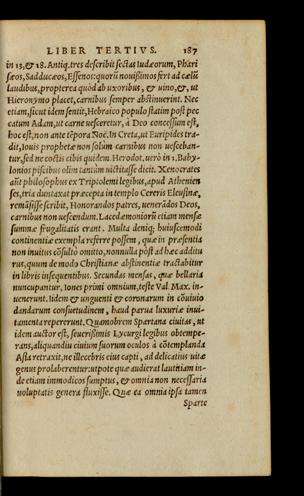 LIBER TERTIVS. 187
in 13, & 18. Antiq. tres describit sectas Iudæorum, Phari
sæos, Sadducæos, Essenos: quorũ nouissimos fert ad cælũ
laudibus, propterea quòd ab uxoribus, & uino, &, ut
Hieronymo placet, carnibus semper abstinuerint. Nec
etiam, sicut idem sentit, Hebraico populo statim post pec
catum Adam, ut carne uesceretur, à Deo concessum est,
hoc est, non ante tẽpora Noë. In Creta, ut Euripides tra-
dit, Iouis prophetæ non solùm carnibus non uesceban-
tur, sed ne coctis cibis quidem. Herodot. uerò in 1. Baby-
lonios piscibus olim tantùm uictitasse dicit. Xenocrates
aũt philosophus ex Triptolemi legibus, apud Athenien
ses, tria duntaxat præcepta in templo Cereris Eleusinæ,
remãsisse scribit, Honorandos patres, uenerãdos Deos,
carnibus non uescendum. Lacedæmoniorũ etiam mensæ
summæ frugalitatis erant. Multa deniq; huiuscemodi
continentiæ exempla referre possem, quæ in præsentia
non inuitus cõsultò omitto, nonnulla pòst ad hæc additu
rus, quum de modo Christianæ abstinentiæ tractabitur
in libris insequentibus. Secundas mensas, quæ bellaria
nuncupantur, Iones primi omnium, teste Val. Max. in-
uenerunt. Iidem & unguenti & coronarum in cõuiuio
dandarum consuetudinem, haud parua luxuriæ inui-
tamenta repererunt. Quamobrem Spartana ciuitas, ut
idem auctor est, seuerißimis Lycurgi legibus obtempe-
rans, aliquandiu ciuium suorum oculos à cõtemplanda
Asia retraxit, ne illecebris eius capti, ad delicatius uitæ
genus prolaberentur: utpote quæ audierat lautitiam in-
de etiam immodicos sumptus, & omnia non necessaria
uoluptatis genera fluxisse. Quæ ea omnia ipsa tamen
Sparte